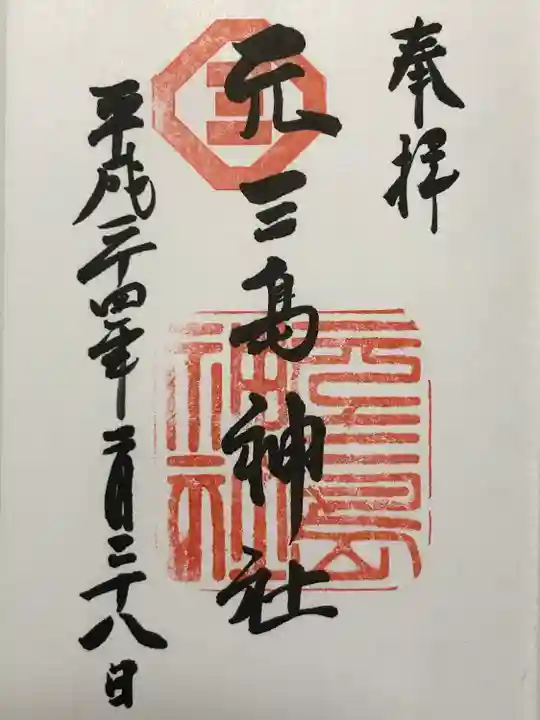 奉拝
三
元三島神社
元三島
神社
平成二十四年二月二十八日